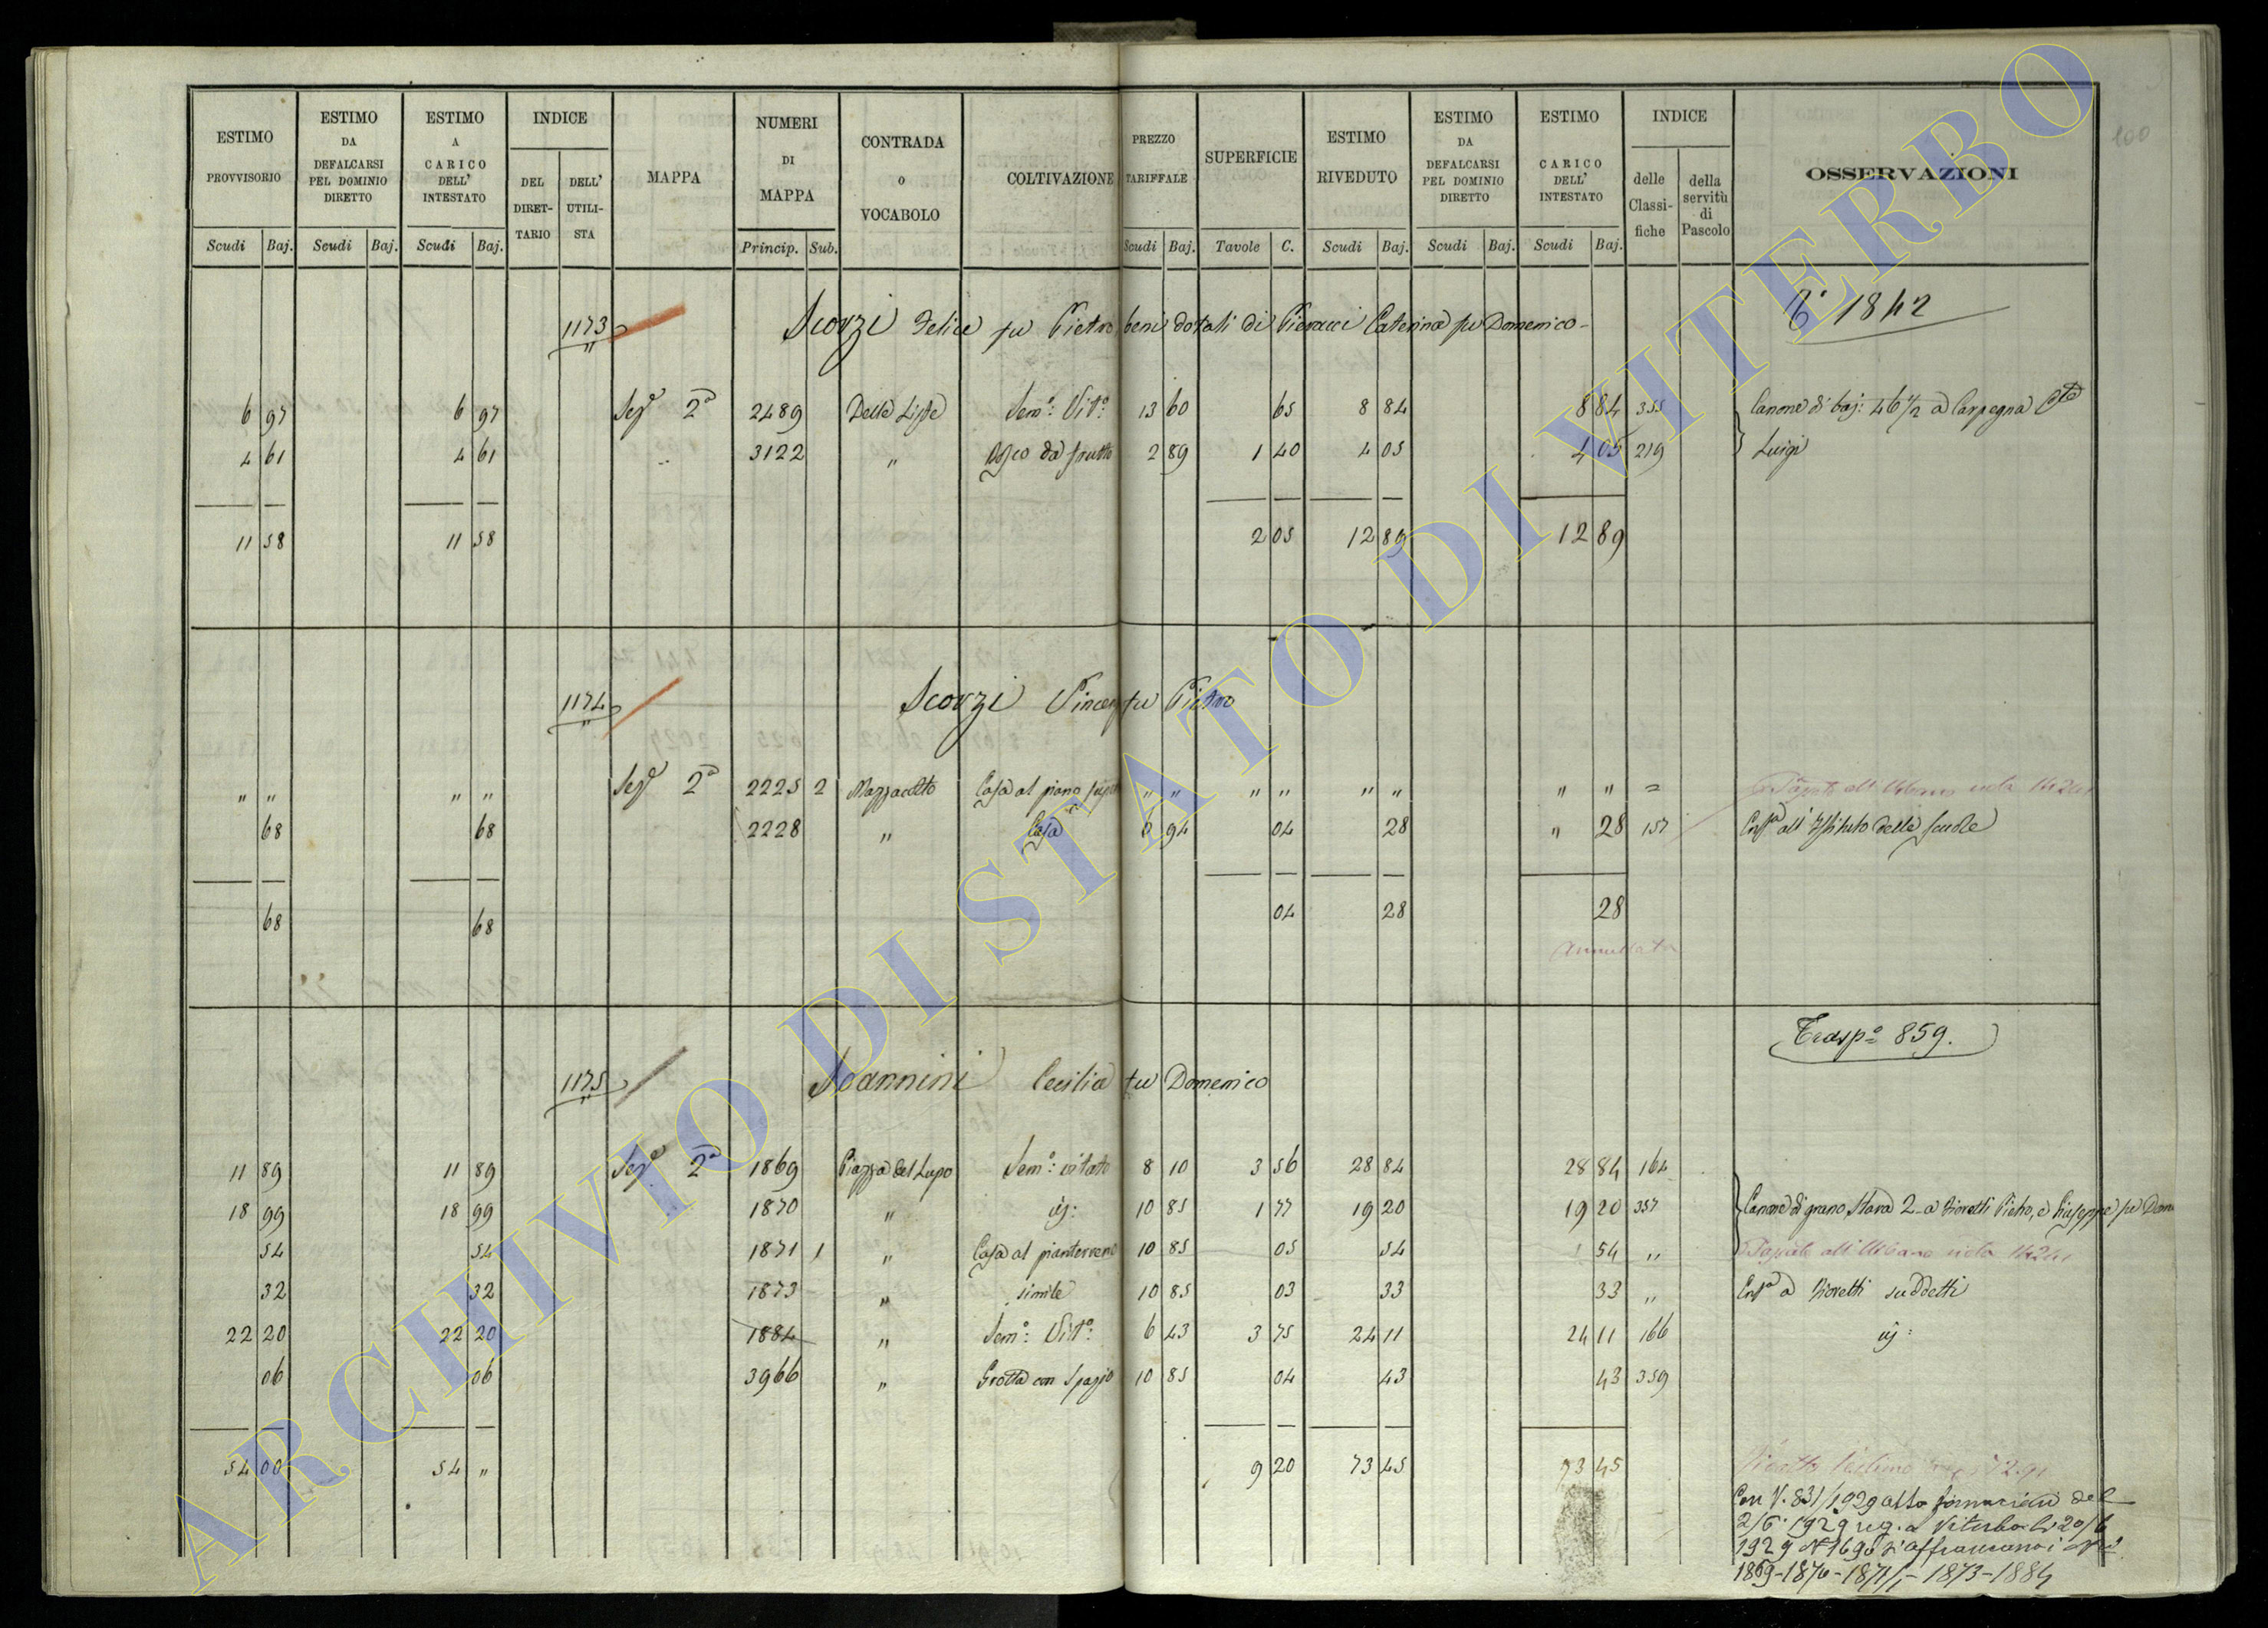 100
ESTIMO PROVVISORIO
ESTIMO DA DEFALCARSI PEL DOMINIO DIRETTO
ESTIMO A CARICO DELL' INTESTATO
INDICE
DEL DIRET-TARIO
DELL' UTILI-STA
MAPPA
NUMERI DI MAPPA
CONTRADA O VOCABOLO
COLTIVAZIONE
PREZZO TARIFFALE
SUPERFICIE
ESTIMO RIVEDUTO
ESTIMO DA DEFALCARSI PEL DOMINIO DIRETTO
ESTIMO CARICO DELL' INTESTATO
INDICE
delle Classi-fiche
della servitù di Pascolo
OSSERVAZIONI
Scudi Baj. Scudi Baj. Scudi Baj. Princip. Sub. Scudi Baj. Tavole C. Scudi Baj. Scudi Baj. Scudi Baj.
1173 Scorzi Felice fu Pietro beni dotali di Pieracci Caterina fu Domenico 1842
6 97 6 97 Sez.e 2a 2489 Delle Liste Sem.o Vit.o 13 60 65 8 84 8 84 355 Canone di baj: 46 1/2 a Carpegna Cte
4 61 4 61 " 3122 " da frutto 2 89 1 40 4 05 4 05 219 Luigi
11 58 11 58 2 05 12 89 12 89
1174 Scorzi Vincenz fu Pietro
" " " " Sez.e 2a 2225 2 Mazzacotto Casa al piano super " " " " " " " " =
68 68 2228 " Casa 6 94 04 28 " 28 157 Ensa all'Istituto delle scuole
68 68 04 28 28
Annullata
Trasp.o 859.
1175 Scannini Cecilia fu Domenico
11 89 11 89 Sez.e 2a 1869 Piazza del Lupo Sem.o vitato 8 10 3 56 28 84 28 84 164
18 99 18 99 1870 " id: 10 85 1 77 19 20 19 20 357 Canone di grano Stara 2 a Fioretti Pietro, e Giuseppe fu Dom
54 54 1871 1 " Casa al pianterreno 10 85 05 54 54 "
32 32 1873 " simile 10 85 03 33 33 " Ensa a Fioretti suddetti
22 20 22 20 1884 " Sem.o Vit.o 6 43 3 75 24 11 24 11 166 id:
06 06 3966 " Grotta con Spazio 10 85 04 43 43 359
54 00 54 " 9 20 73 45 73 45
Con V. 831/1929 atto del
2/6 1929 reg. a Viterbo li 20/6
1929 N 1690 si affrancano i
1869-1870-1871/1-1873-1884
ARCHIVIO DI STATO DI VITERBO